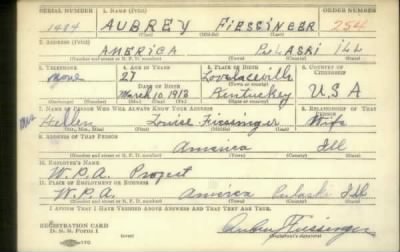 SERIAL NUMBER 1. NAME (Print) ORDER NUMBER
1484 AUBREY FIESSINGER 254
(First) (Middle) (Last)
2. ADDRESS (Print)
AMERICA PULASKI ILL
(Number and street or R. F. D. number) (Town) (County) (State)
3. TELEPHONE 4. AGE IN YEARS 5. PLACE OF BIRTH 6. COUNTRY OF CITIZENSHIP
None 27 Lovelaceville
DATE OF BIRTH (Town or county)
March 10, 1913 Kentucky U S A
(Exchange) (Number) (Mo.) (Day) (Yr.) (State or country)
7. NAME OF PERSON WHO WILL ALWAYS KNOW YOUR ADDRESS 8. RELATIONSHIP OF THAT PERSON
Mrs Hellen Louise Fiessinger Wife
(Mr., Mrs., Miss) (First) (Middle) (Last)
9. ADDRESS OF THAT PERSON
America Ill
(Number and street or R. F. D. number) (Town) (County) (State)
10. EMPLOYER'S NAME
W.P.A. Project
11. PLACE OF EMPLOYMENT OR BUSINESS
W.P.A. America Pulaski Ill
(Number and street or R. F. D. number) (Town) (County) (State)
I AFFIRM THAT I HAVE VERIFIED ABOVE ANSWERS AND THAT THEY ARE TRUE.
REGISTRATION CARD
D. S. S. FORM 1 Aubrey Fiessinger
(Registrant's signature)